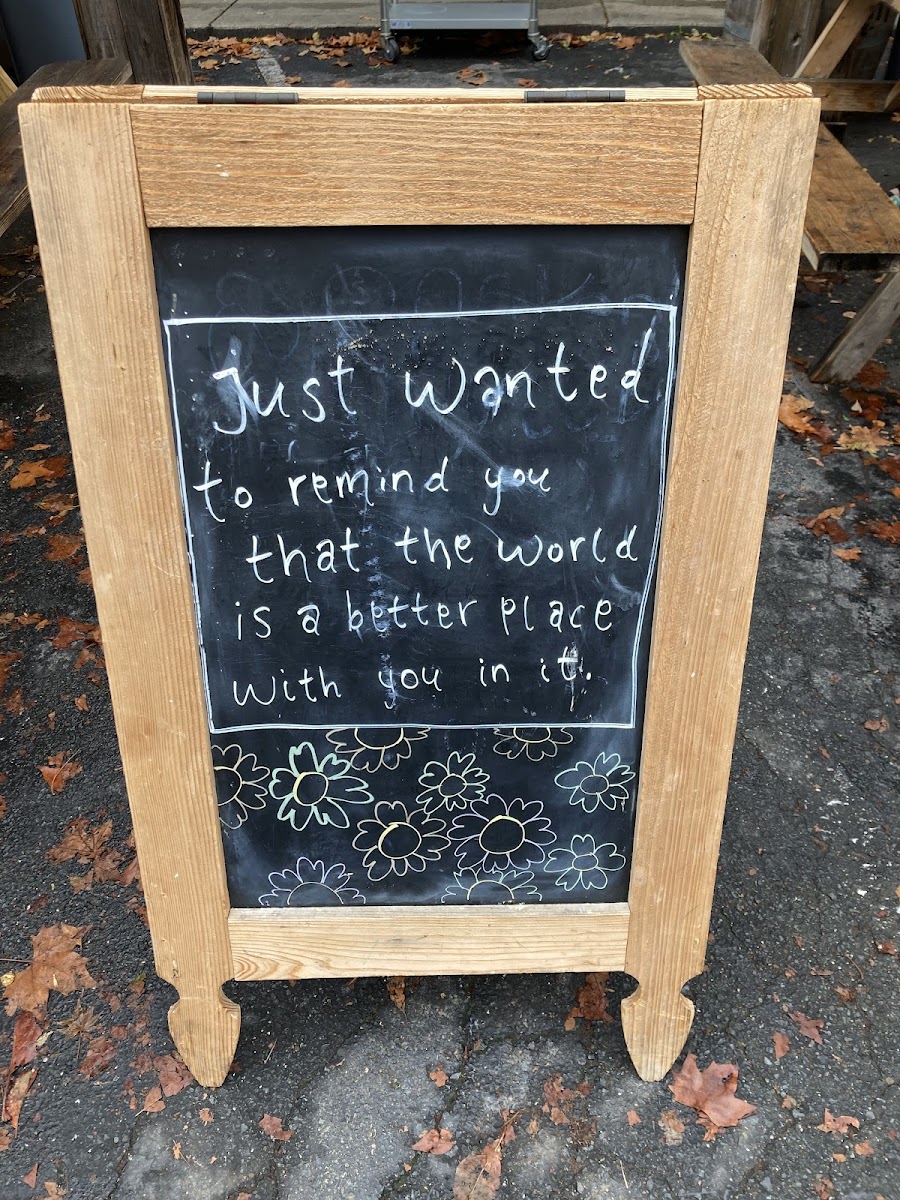 Just wanted
to remind you
that the world
is a better place
with you in it.